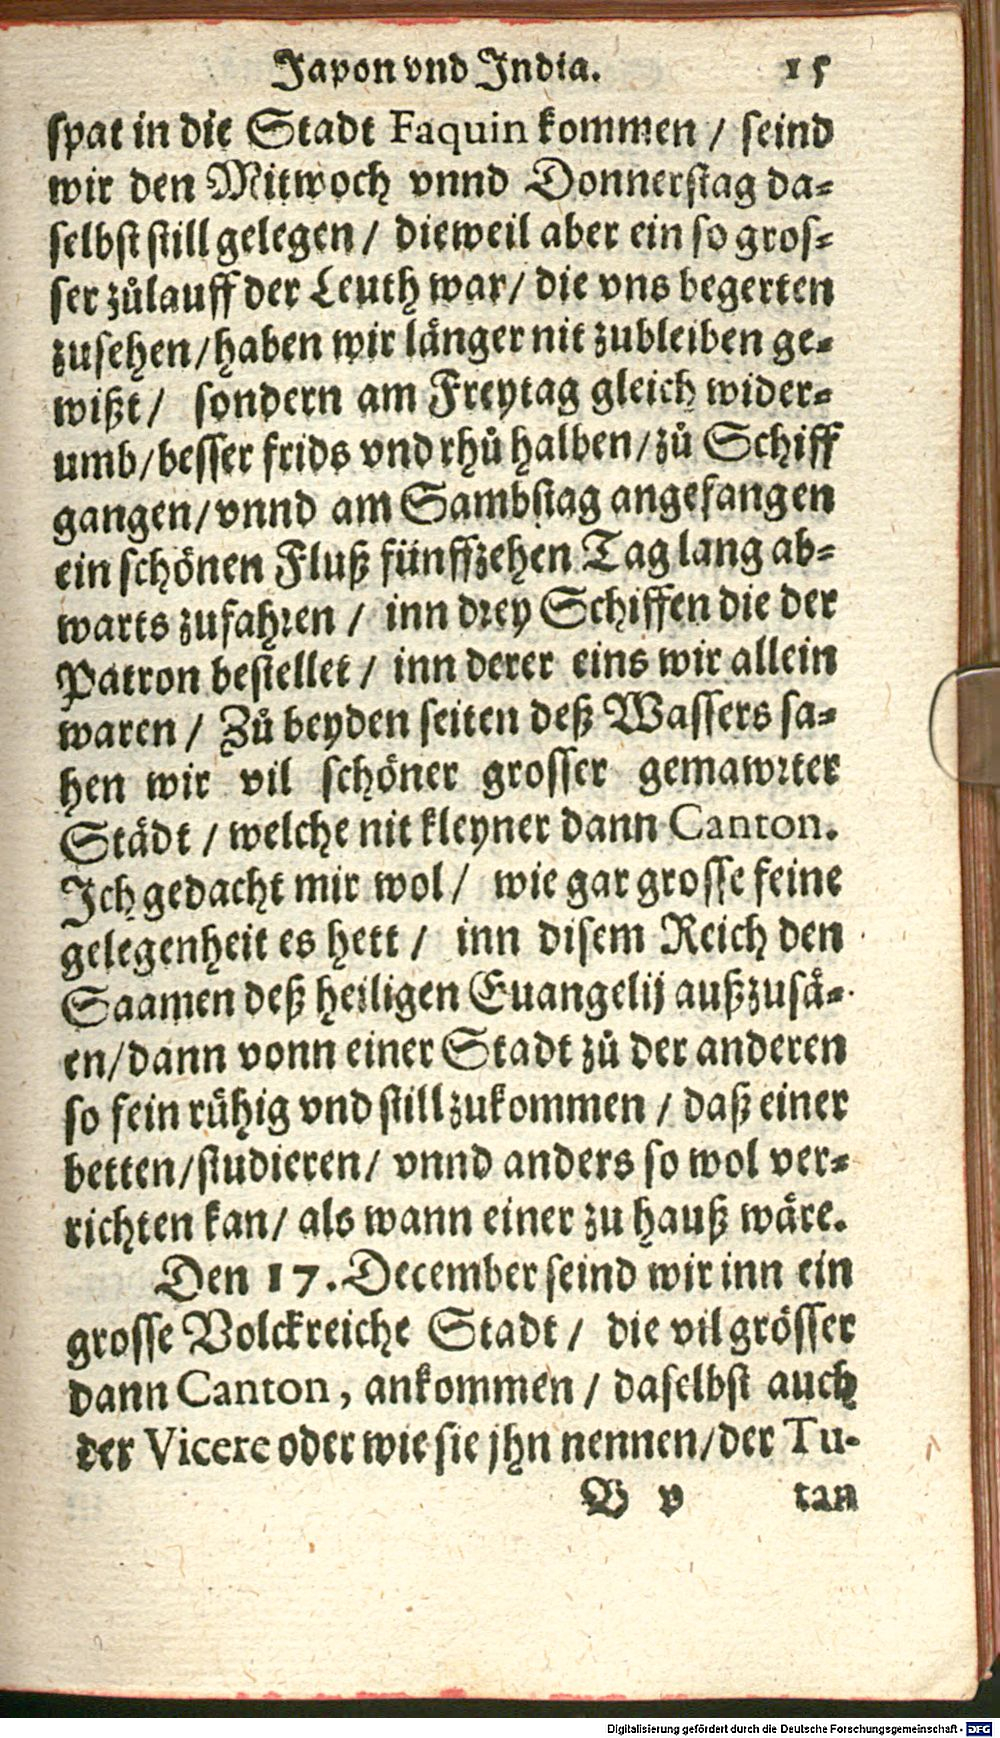 Japon vnd India. 15
spat in die Stadt Faquin kommen / seind
wir den Mitwoch vnnd Donnerstag da-
selbst still gelegen / dieweil aber ein so gros-
ser zůlauff der Leuth war / die vns begerten
zusehen / haben wir länger nit zubleiben ge-
wißt / sondern am Freytag gleich wider-
umb / besser frids vnd rhů halben / zů Schiff
gangen / vnnd am Sambstag angefangen
ein schönen Fluß fünffzehen Tag lang ab-
warts zufahren / inn drey Schiffen die der
Patron bestellet / inn derer eins wir allein
waren / Zů beyden seiten deß Wassers sa-
hen wir vil schöner grosser gemawrter
Städt / welche nit kleyner dann Canton.
Ich gedacht mir wol / wie gar grosse feine
gelegenheit es hett / inn disem Reich den
Saamen deß heiligen Euangelij außzusä-
en / dann vonn einer Stadt zů der anderen
so fein růhig vnd still zukommen / daß einer
betten / studieren / vnnd anders so wol ver-
richten kan / als wann einer zu hauß wäre.
Den 17. December seind wir inn ein
grosse Volckreiche Stadt / die vil grösser
dann Canton, ankommen / daselbst auch
der Vicere oder wie sie jhn nennen / der Tu-
B v tan
Digitalisierung gefördert durch die Deutsche Forschungsgemeinschaft - DFG